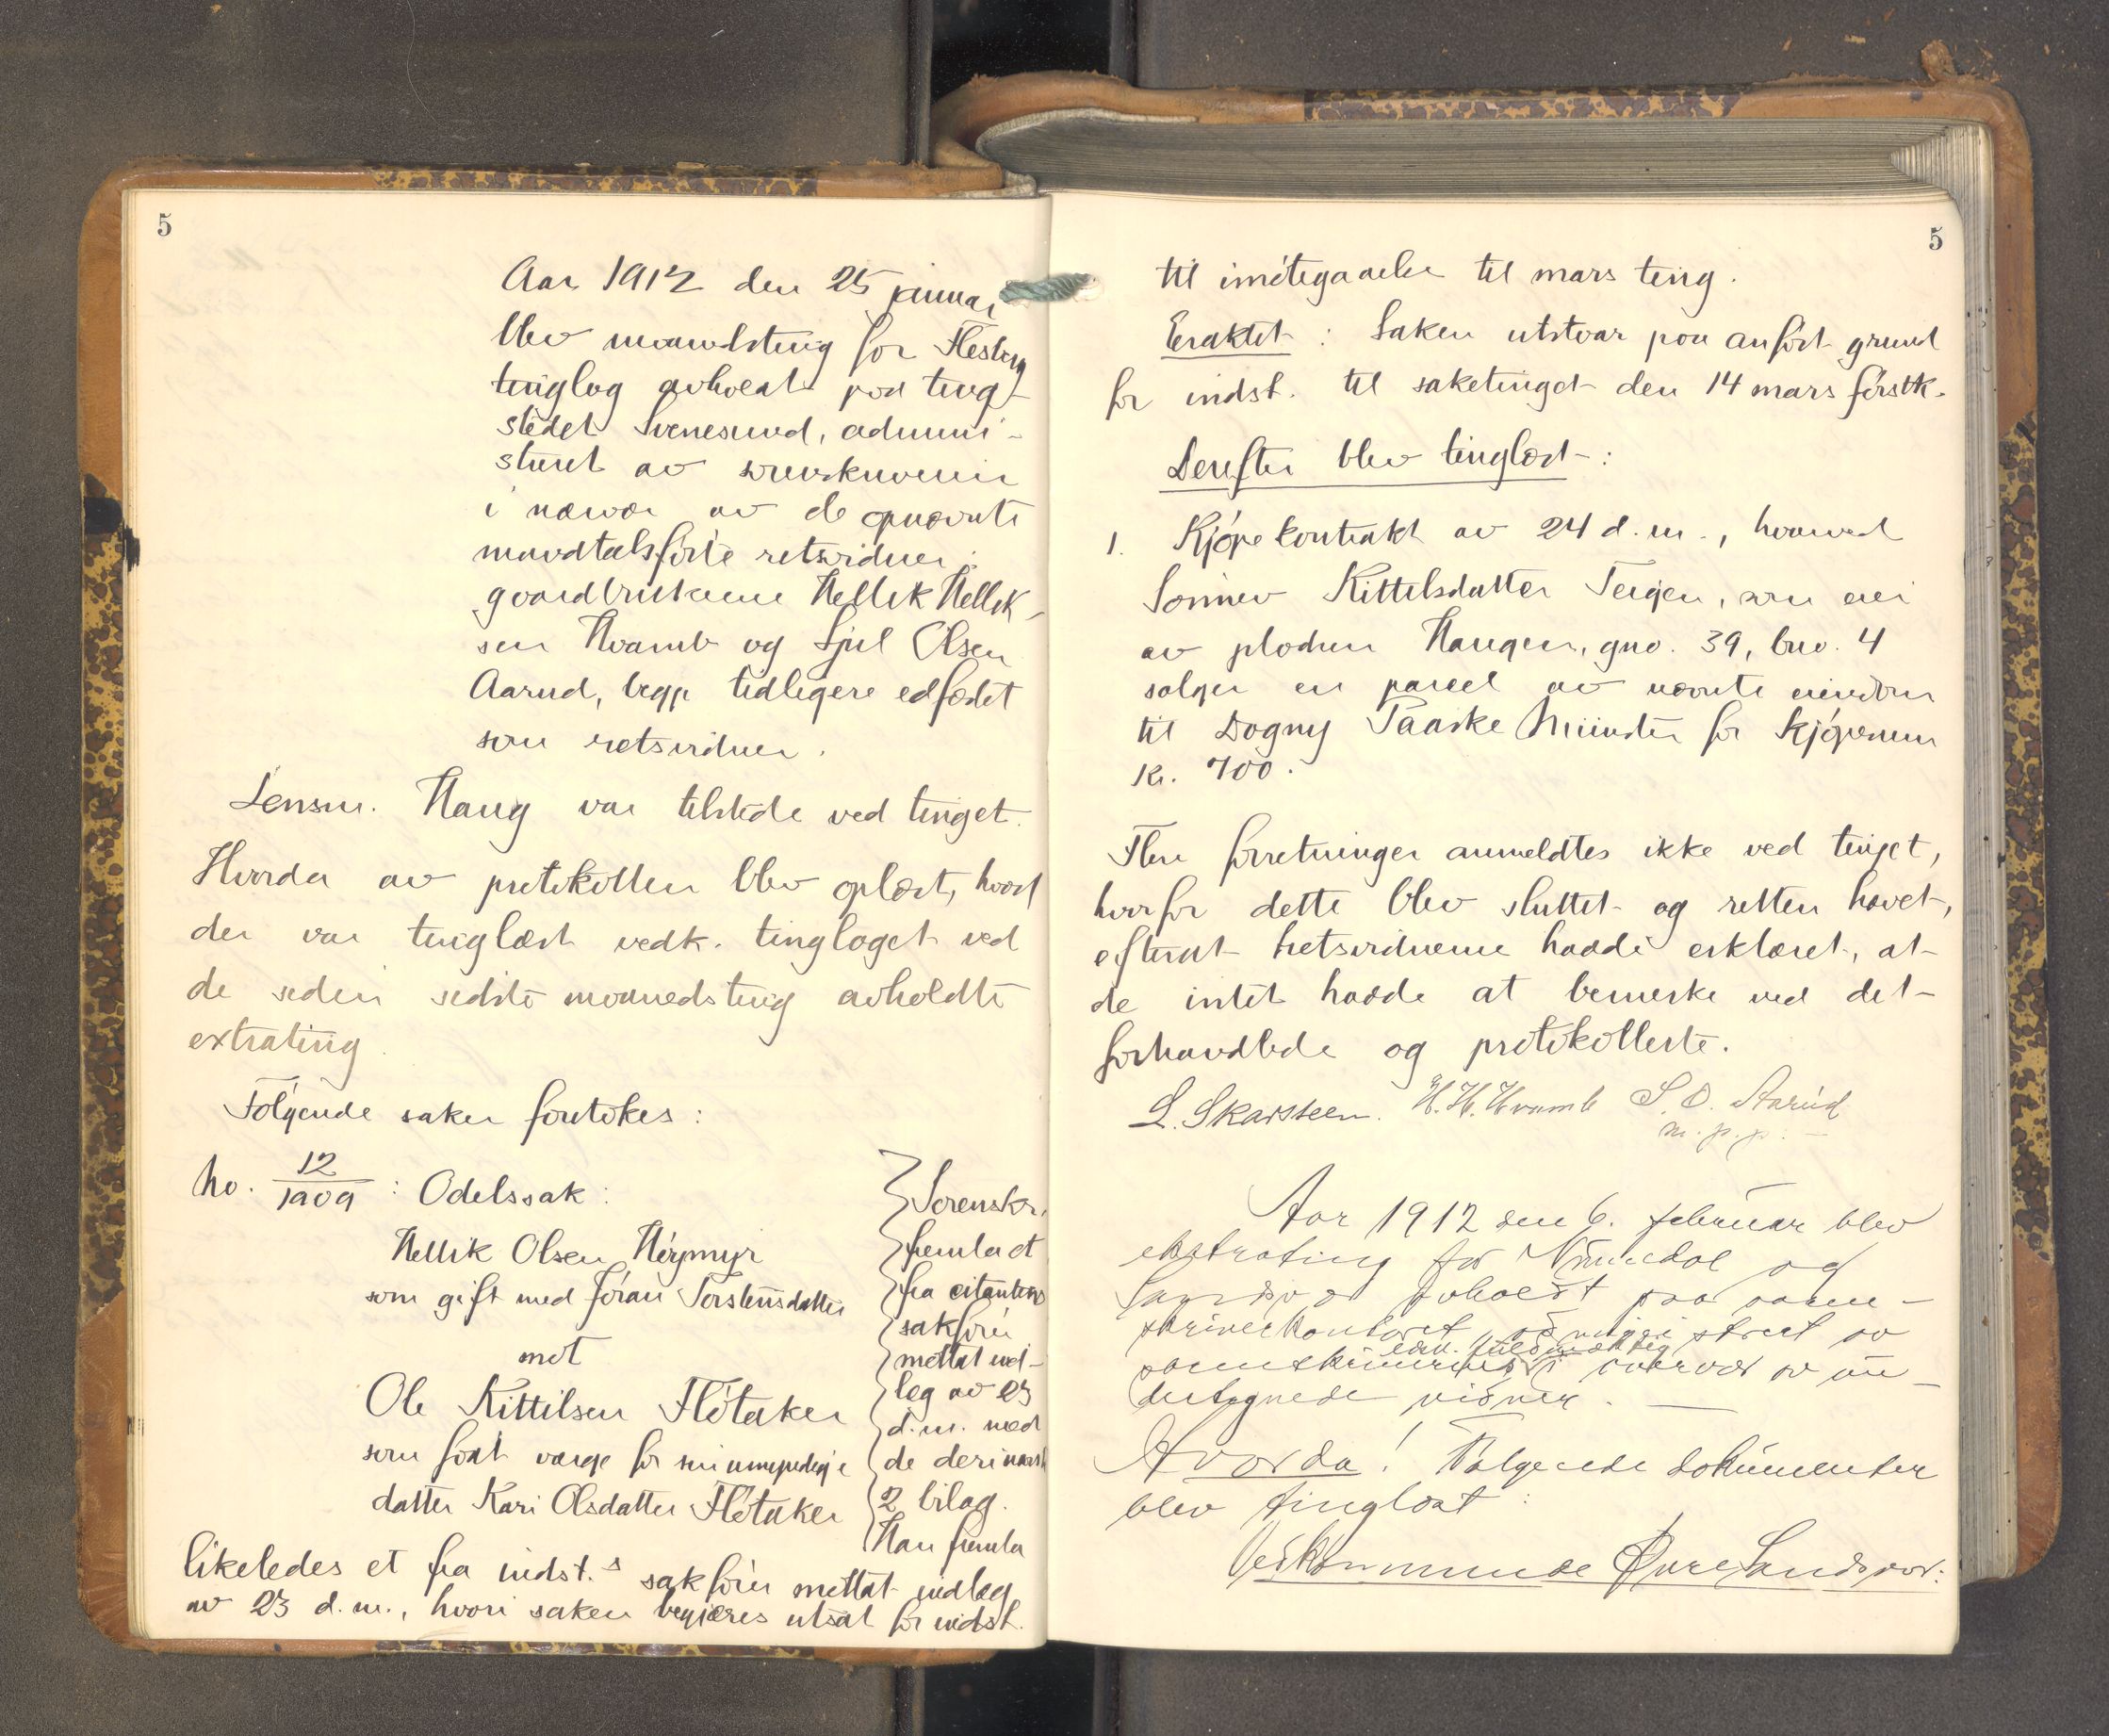 5
Aar 1912 den 25 januar
blev maanedsting for Flesberg
tinglag avholdt paa ting-
stedet Svenesund, admini-
streret av sorenskriveren
i nærvær av de opnævnte
mandtalsførte retsvidner:
gaardbrukerne Hellik Hellik-
sen Kvamb og Sjul Olsen
Aarud, begge tidligere edfæstet
som retsvidner.
Lensm. Haug var tilstede ved tinget.
Hvorda av protokollen blev oplæst, hvad
der var tinglæst vedk. tinglaget ved
de siden sidste maanedsting avholdte
extrating.
Følgende saker foretokes:
No. 12/1909: Odelssak:
Hellik Olsen Høymyr
som gift med Jøran Torstensdatter
mot
Ole Kittilsen Fløtaker
som født værge for sin umyndige
datter Kari Olsdatter Fløtaker
Sorenskr.
fremla et
fra citantens
sakfører
mottat ind-
læg av 23
d.m. med
de deri nævnte
2 bilag.
Han fremla
likeledes et fra indst.s sakfører mottat indlæg
av 23 d.m., hvori saken begjæres utsat for indst.
5
til imøtegaaelse til mars ting.
Eragtet: Saken utstaar paa anført grund
for indst. til saketinget den 14 mars førstk.
Derefter blev tinglæst:
1. Kjøpekontrakt av 24 d.m., hvorved
Sønnev Kittelsdatter Teigen, som eier
av pladsen Haugen, gno. 39, bno. 4
sælger en parcel av nævnte eiendom
til Dagny Paaske Münster for kjøpesum
Kr. 700.
Flere forretninger anmeldtes ikke ved tinget,
hvorfor dette blev sluttet og retten hævet,
efterat retsvidnerne hadde erklæret, at
de intet hadde at bemerke ved det
forhandlede og protokollerte.
L. Skarsteen. H. H. Kvamb S. O. Aarud
m.p.p.
Aar 1912 den 6. februar blev
ekstrating for Numedal og
Sandsvær avholdt paa soren-
skriverkontoret, administreret av
sorenskriverens edsv. fuldmægtig i nærvær av un-
dertegnede vidner.
Hvorda! Følgende dokumenter
blev tinglæst:
Vedkommende Øvre Sandsvær: